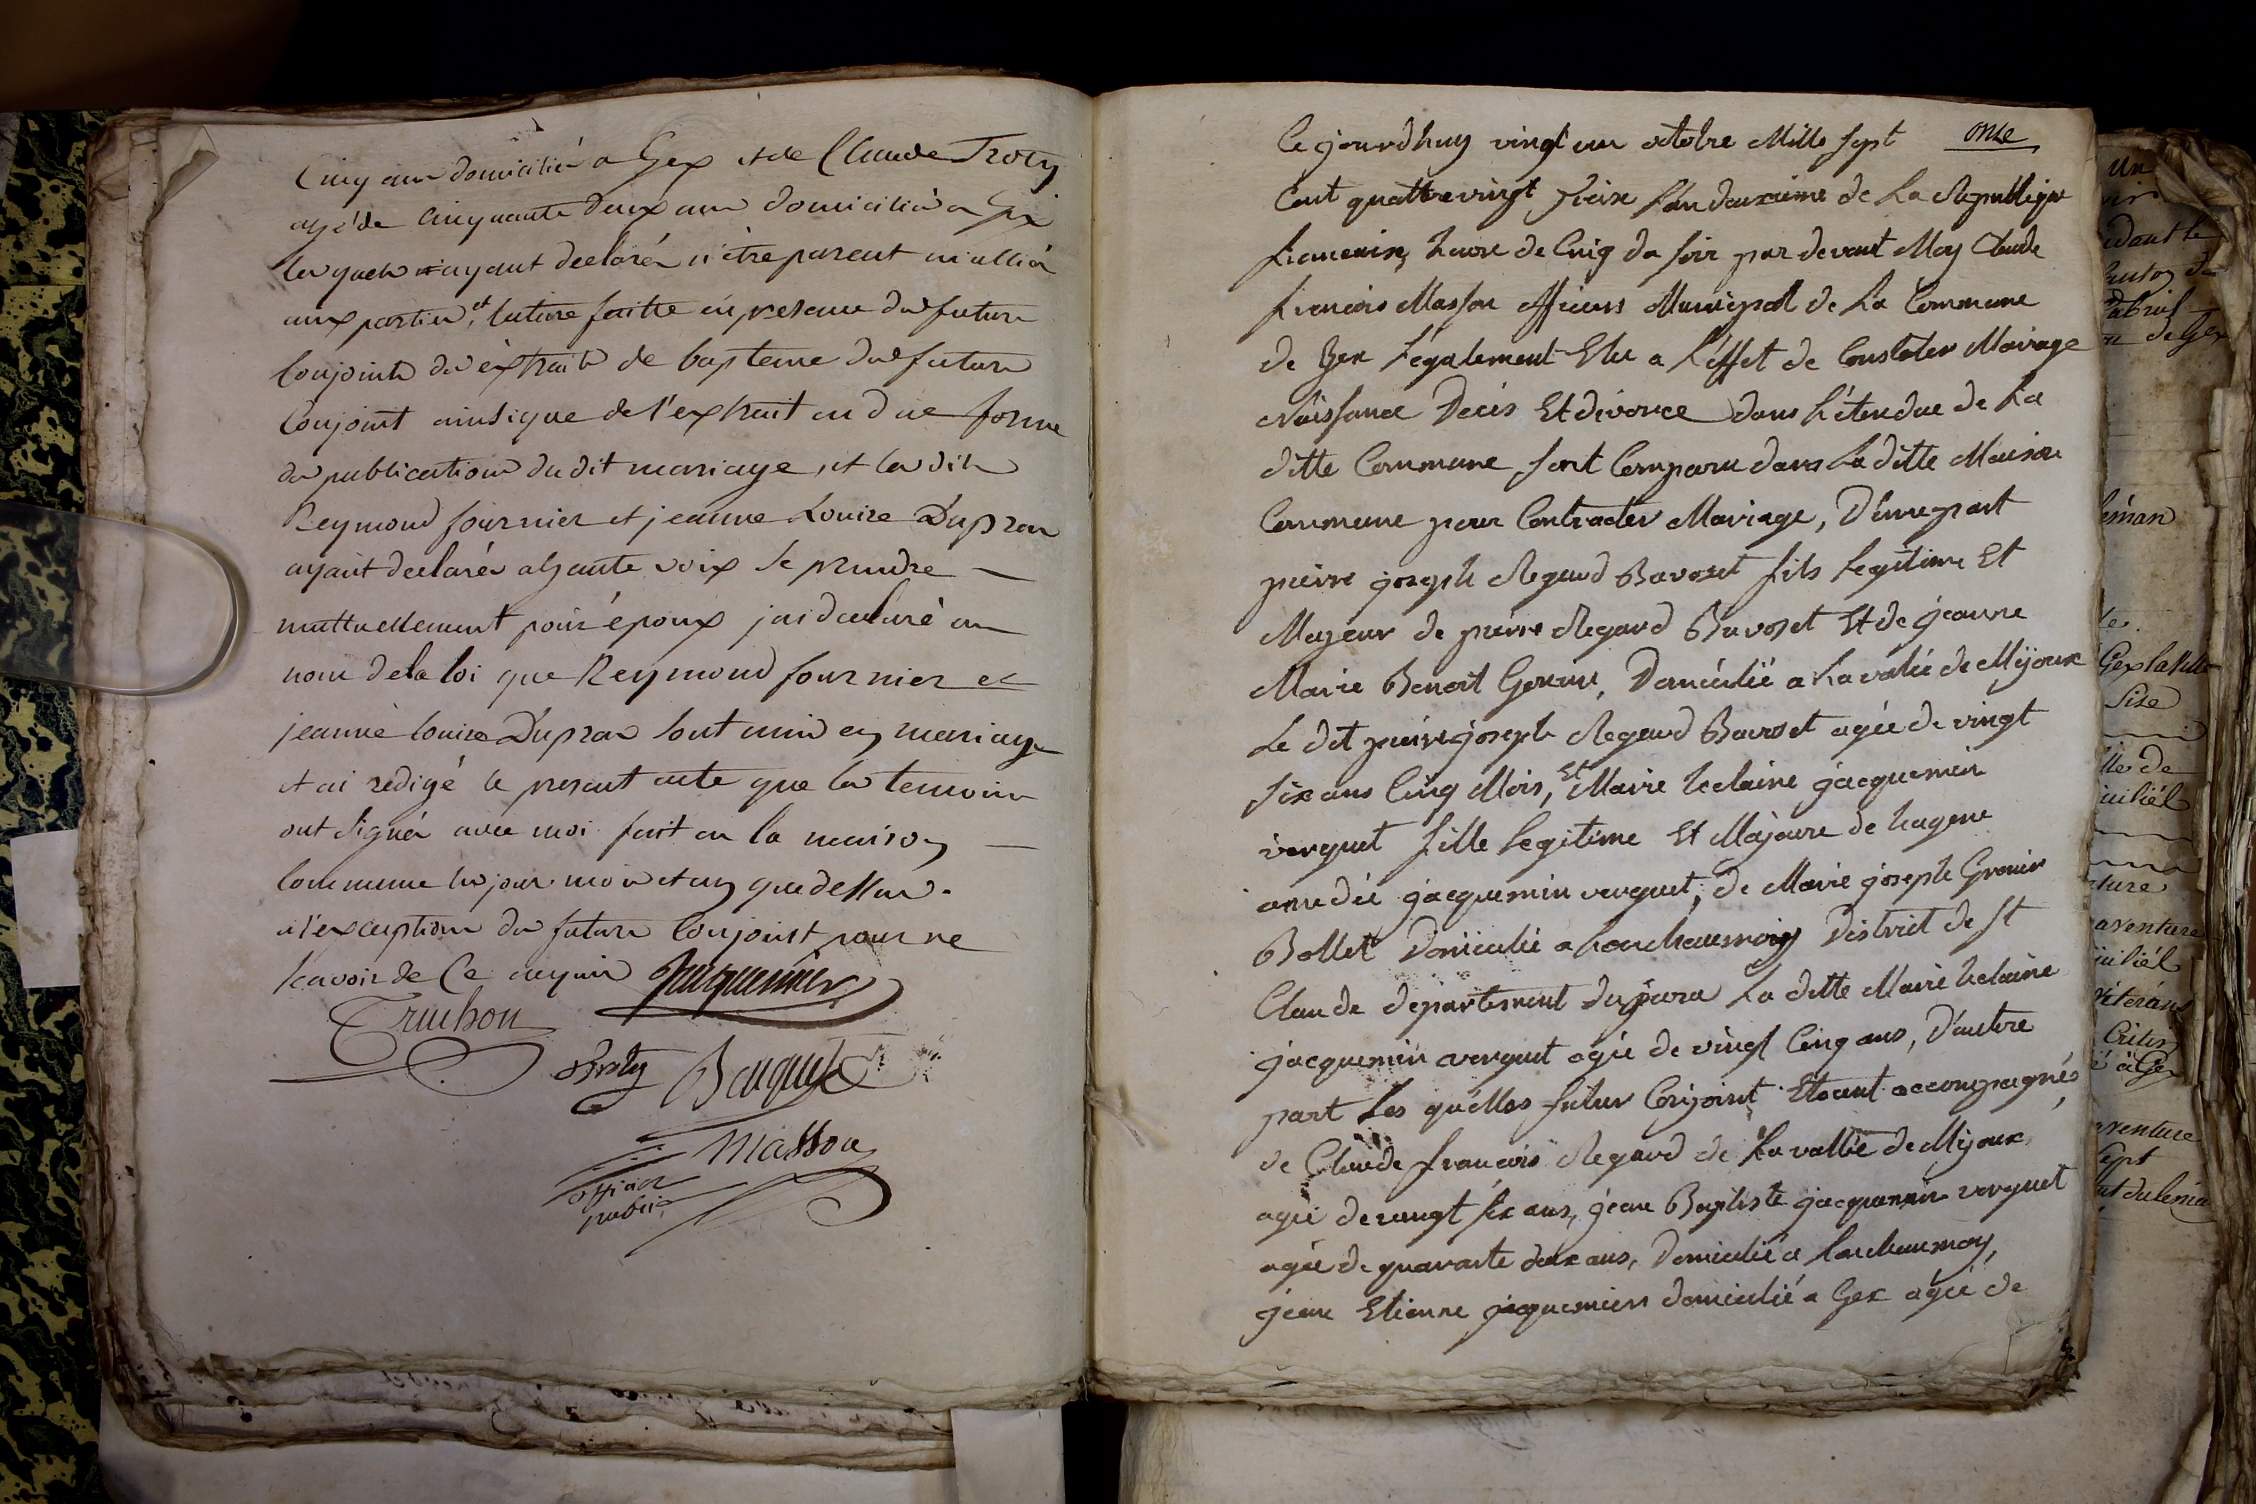 Cinq ans domicilié a Gex et de Claude Troty
agé de cinquante deux ans domicilié a Gex
lesquels ayant declarés n'être parent ni alliés
aux parties, et lecture faitte en presence des futurs
Conjoints des extraits de bapteme des futurs
Conjoint ainsique de l'extrait en due forme
de publication du dit mariage, et les dits
Reymond fournier et jeanne Louise Dupraz
ayant declarés a hautte voix se prendre
muttuellement pour époux jai declaré au
nom de la loi que Reymond fournier et
jeanne louise Dupraz sont unis en mariage
et ai redigé le present acte que les temoins
ont signés avec moi fait en la maison
Commune les jour mois et an que dessus.
a l'exception du futur Conjoint pour ne
scavoir de Ce enquis Jacquemier
Truchon
Troty Bouquet
Masson
officier
public
onze
Ce jourdhuy vingt un octobre Mille sept
Cent quattre vingt treize L'an deuxieme de La Republique
francaise, heure de Cinq du soir par devant Moy Claude
francois Masson officiers Municipal de La Commune
de Gex Légalement Elu a L'éffet de Constater Mariage
Naissance Décès Et divorce dans L'étendue de La
ditte Commune, sont Comparu dans La ditte Maison
Commune pour Contracter Mariage, D'une part
pierre joseph Regard Bavoset fils Legitime Et
Majeur de pierre Regard Bavoset Et de jeanne
Marie Benoit Domicilié a La valée de Mijoux
Le dit pierre joseph Regard Bavoset agée de vingt
six ans Cinq Mois, Et Marie helaine jacquemin
verguet fille Legitime Et Majeure de
amedée jacquemin verguet, de Marie joseph Grenier
Bollet Domicilié a Lonchaumoiy District de St
Claude département du jura La ditte Marie helaine
jacquemin verguet agée de vingt Cinq ans, D'autre
part Les quélles futur Conjoint Etoient accompagnés
de Claude francois Regard de La vallée de Mijoux,
agée de vingt six ans, jean Baptiste jacquemin verguet
agée de quarante deux ans, Domicilié a Lonchaumoy,
jean Etienne jacquemiers domicilié a Gex agée de